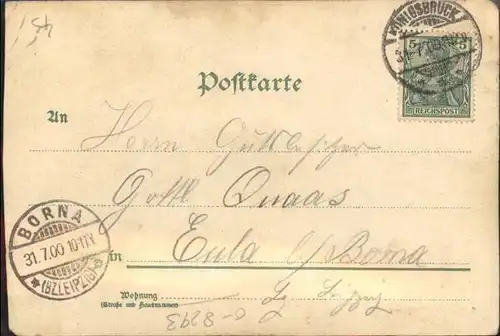 45
KÖNIGSBRÜCK
5 5
REICHSPOST
Postkarte
An
Herrn Gutsbesitzer
Gottl. Quaas
BORNA
31.7.00 10-11V
*(BZ.LEIPZIG)
in
Eula b/Borna
Wohnung
(Straße und Hausnummer)
Bz. Leipzig
6-8293